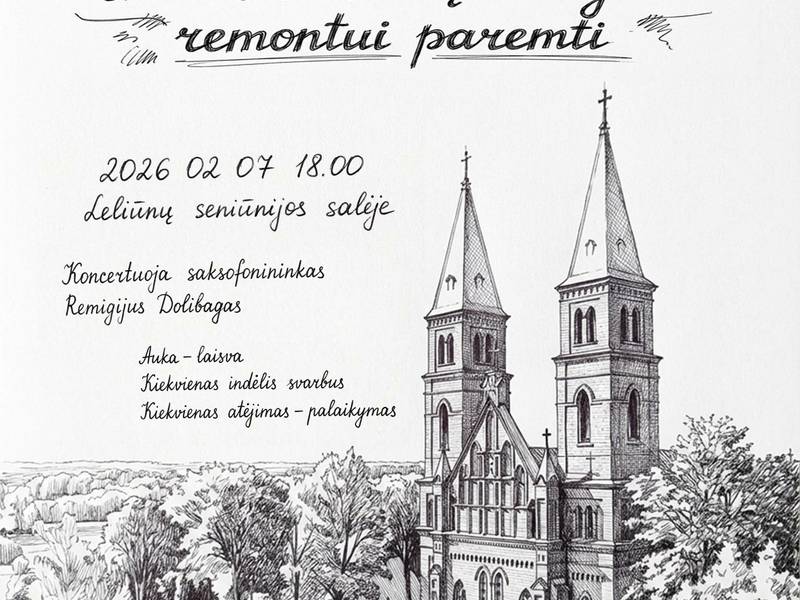 remontui paremti
2026 02 07 18.00
Leliūnų seniūnijos salėje
Koncertuoja saksofonininkas
Remigijus Dolibagas
Auka – laisva
Kiekvienas indėlis svarbus
Kiekvienas atėjimas – palaikymas